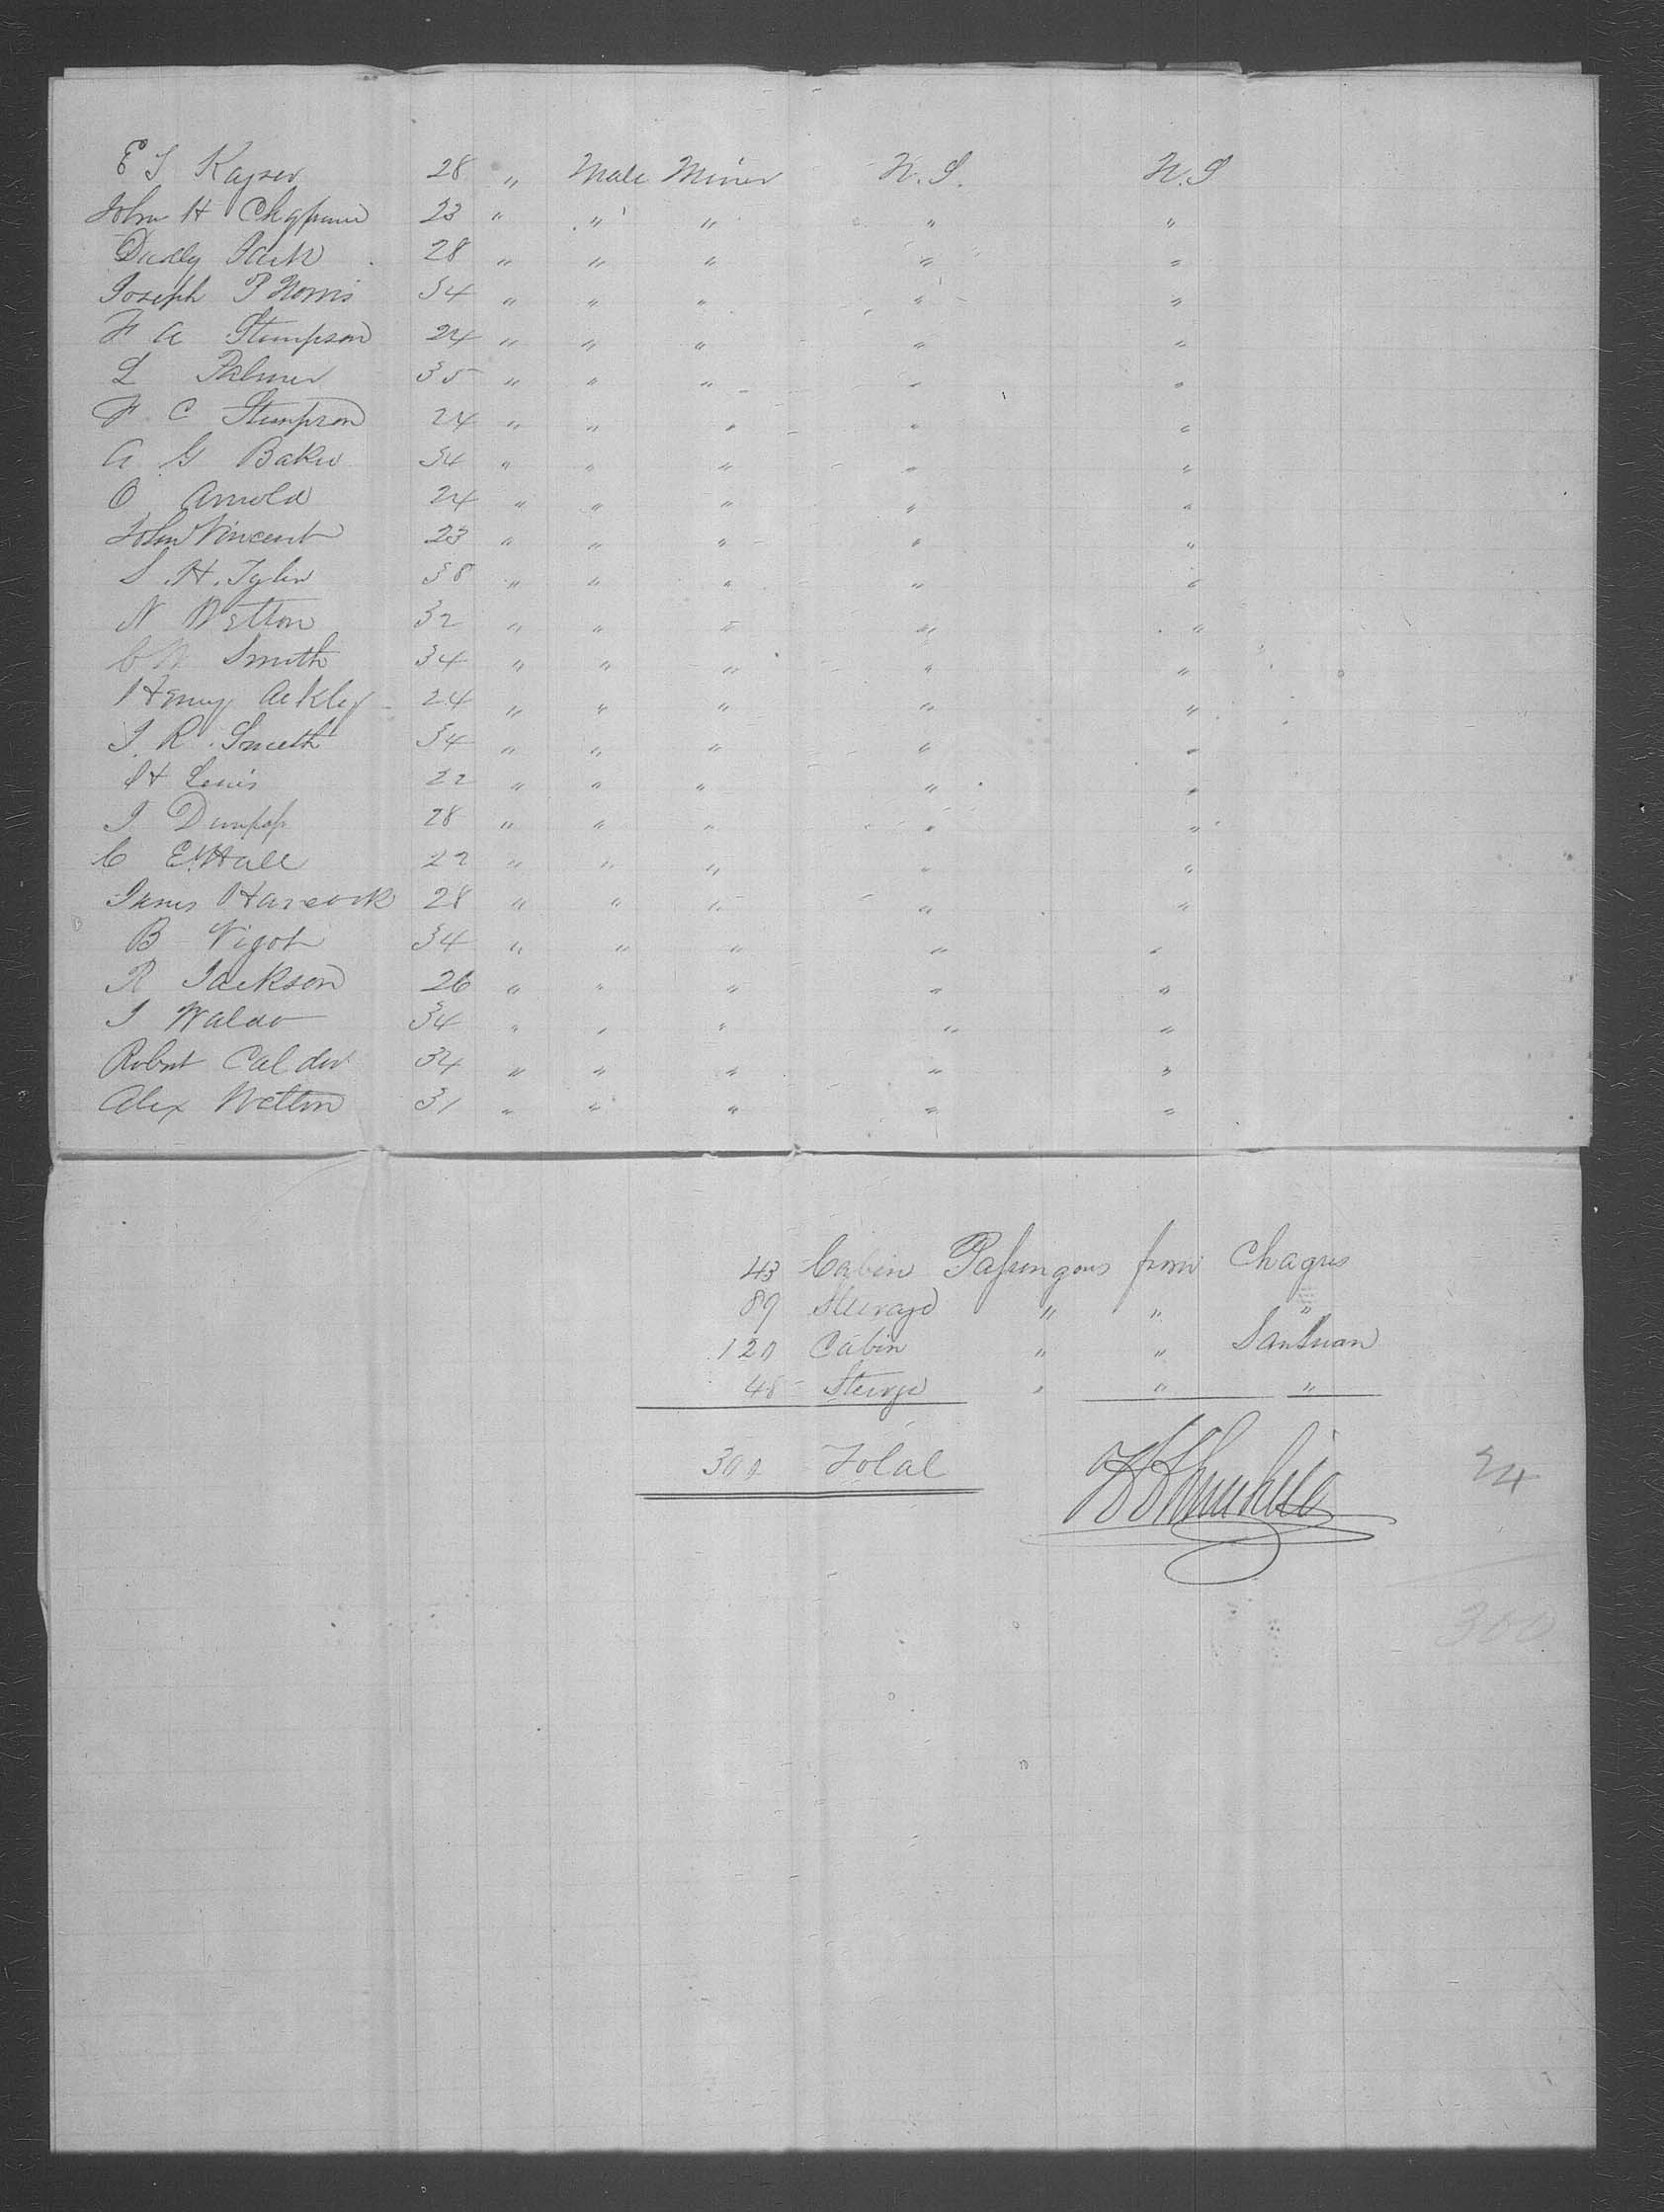 E J Kayser 28 " Male Miner U.S. U.S
John H Chapman 23 " " " " "
Dudly Park 28 " " " " "
Joseph P Norris 34 " " " " "
F A Stimpson 24 " " " " "
L Palmer 35 " " " " "
F C Stimpson 24 " " " " "
A G Baker 34 " " " " "
O Arnold 24 " " " " "
John Vincent 23 " " " " "
S. H. Tyler 38 " " " " "
N Wetton 32 " " " " "
C W Smith 34 " " " " "
Henry Ackley 24 " " " " "
J. R. Smith 34 " " " " "
H Lewis 22 " " " " "
J 28 " " " " "
C E. Hall 22 " " " " "
James Hancock 28 " " " " "
B Vigot 34 " " " " "
R Jackson 26 " " " " "
J Waldo 34 " " " " "
Robert Calder 34 " " " " "
Alex Wetton 31 " " " " "
43 Cabin Passengers from Chagres
89 Steerage " " "
120 Cabin " " San Juan
48 Steerge " " "
300 Total
24
300